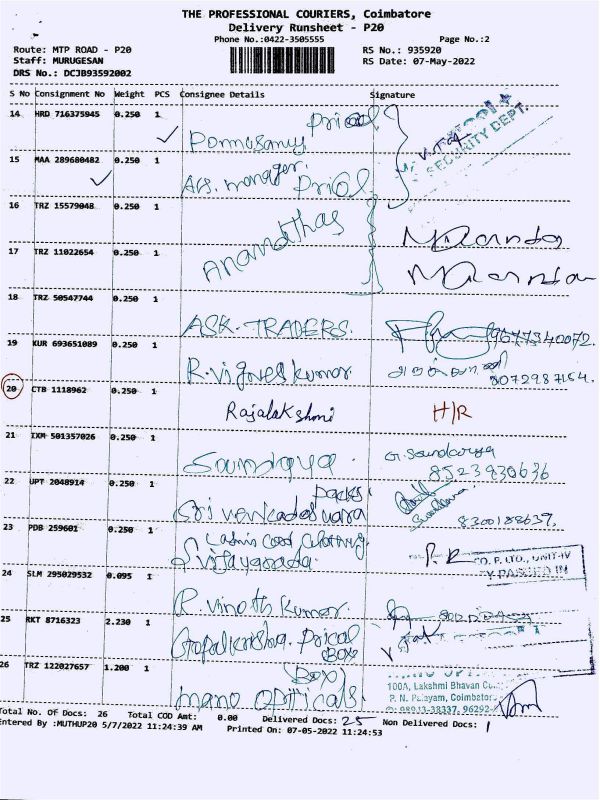 THE PROFESSIONAL COURIERS, Coimbatore
Delivery Runsheet - P20
Phone No.:0422-3505555 Page No.:2
Route: MTP ROAD - P20 RS No.: 935920
Staff: MURUGESAN RS Date: 07-May-2022
DRS No.: DCJB93592002
S No Consignment No Weight PCS Consignee Details Signature
14 HRD 716375945 0.250 1
Ponnusamy Pricol
SECURITY DEPT.
15 MAA 289680482 0.250 1
manager. Pricol
16 TRZ 15579048 0.250 1
Anandthas
17 TRZ 11022654 0.250 1
18 TRZ 50547744 0.250 1
ASK. TRADERS. 9677340072.
19 KUR 693651089 0.250 1
R. Vigneskumar 8072987154.
20 CTB 1118962 0.250 1
Rajalakshmi H/R
21 IXM 501357026 0.250 1
Soundarya. G. Soundarya
8523930636
22 UPT 2048914 0.250 1
Sri Venkadeshwara Packs 8300188637.
23 PDB 259601 0.250 1
CO. P. LTD., UNIT-IV
24 SLM 295029532 0.095 1
R. Vinoth kumar.
25 RKT 8716323 2.230 1
Pricol
Box
26 TRZ 122027657 1.200 1
(Box)
mano opticals.
100A, Lakshmi Bhavan
P. N. Palayam, Coimbator
Total No. Of Docs: 26 Total COD Amt: 0.00 Delivered Docs: 25 Non Delivered Docs: 1
Entered By :MUTHUP20 5/7/2022 11:24:39 AM Printed On: 07-05-2022 11:24:53